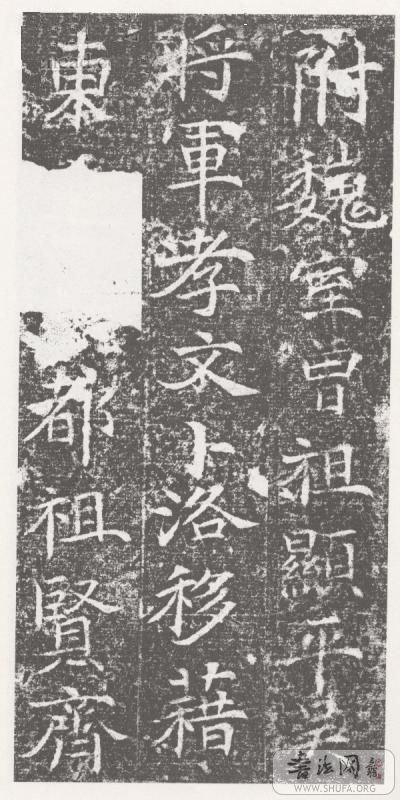 附魏室曾祖顯平吳
將軍孝文卜洛移藉
東都祖賢齊
書法网
WWW.SHUFA.ORG